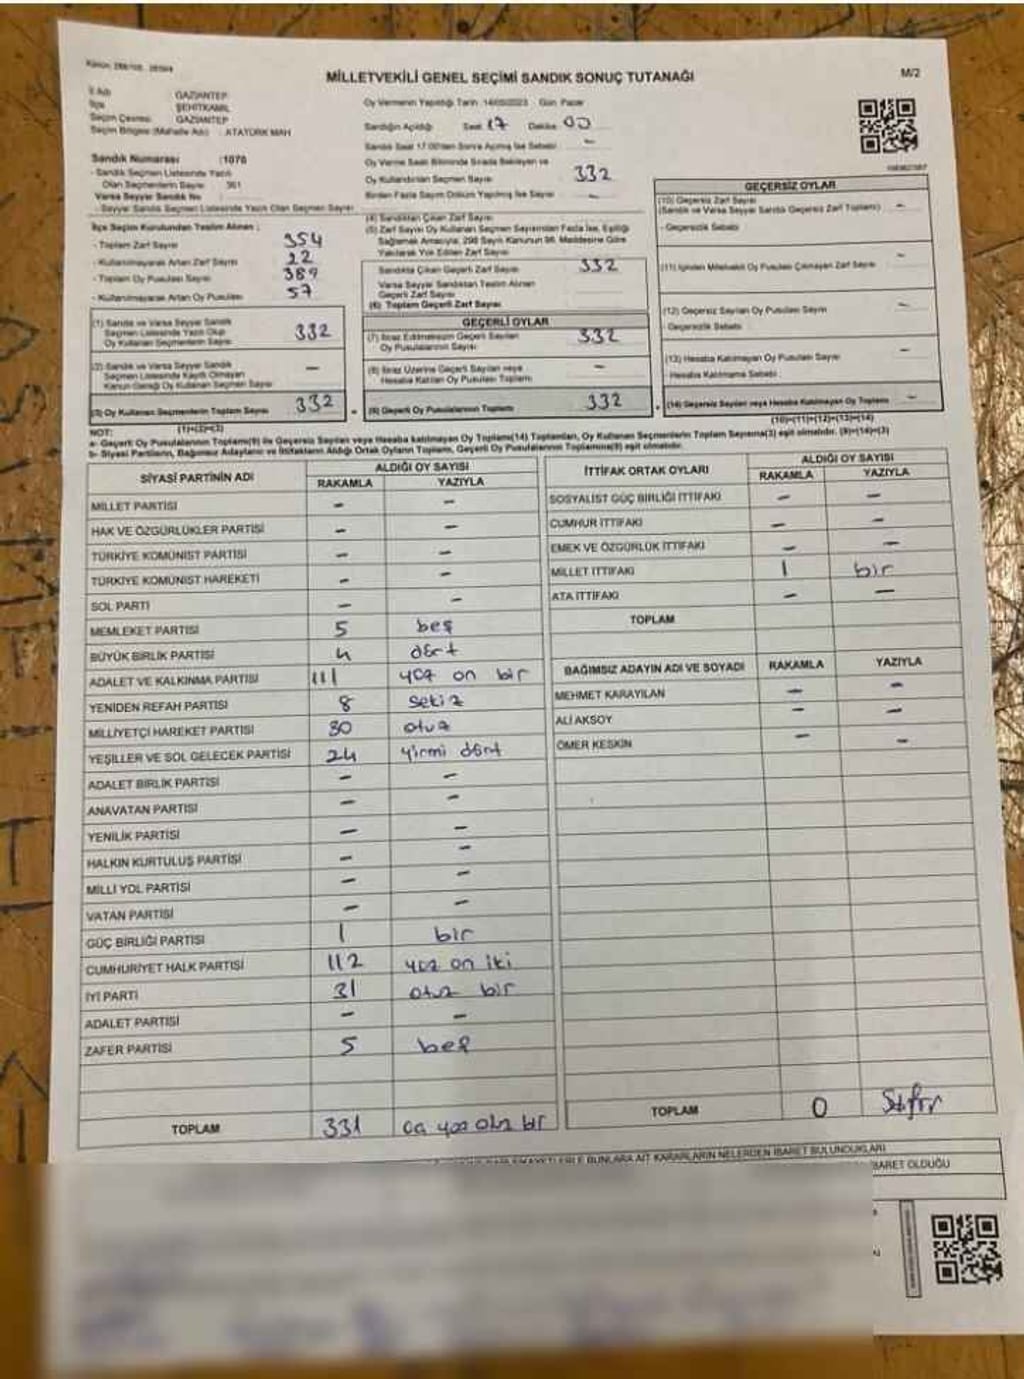 MİLLETVEKİLİ GENEL SEÇİMİ SANDIK SONUÇ TUTANAĞI
M/2
İl Adı GAZİANTEP
İlçe ŞEHİTKAMİL
Seçim Çevresi GAZİANTEP
Seçim Bölgesi (Mahalle Adı) : ATATÜRK MAH
Sandık Numarası :1076
- Sandık Seçmen Listesinde Yazılı
Olan Seçmenlerin Sayısı 361
Varsa Seyyar Sandık No
- Seyyar Sandık Seçmen Listesinde Yazılı Olan Seçmen Sayısı
Oy Vermenin Yapıldığı Tarih 14/05/2023 Gün Pazar
Sandığın Açıldığı Saat 17 Dakika 00
Sandık Saat 17.00'den Sonra Açılmış İse Sebebi -
Oy Verme Saati Bitiminde Sırada Bekleyen ve
Oy Kullandırılan Seçmen Sayısı 332
Birden Fazla Sayım Döküm Yapılmış İse Sayısı -
İlçe Seçim Kurulundan Teslim Alınan :
- Toplam Zarf Sayısı 354
- Kullanılmayarak Artan Zarf Sayısı 22
- Toplam Oy Pusulası Sayısı 389
- Kullanılmayarak Artan Oy Pusulası 57
(1) Sandık ve Varsa Seyyar Sandık
Seçmen Listesinde Yazılı Olup
Oy Kullanan Seçmenlerin Sayısı 332
(2) Sandık ve Varsa Seyyar Sandık
Seçmen Listesinde Kayıtlı Olmayan
Kanun Gereği Oy Kullanan Seçmen Sayısı -
(3) Oy Kullanan Seçmenlerin Toplam Sayısı 332
(1)+(2)=(3)
(4) Sandıktan Çıkan Zarf Sayısı
(5) Zarf Sayısı Oy Kullanan Seçmen Sayısından Fazla İse, Eşitliği
Sağlamak Amacıyla, 298 Sayılı Kanunun 98. Maddesine Göre
Yakılarak Yok Edilen Zarf Sayısı
Sandıkta Çıkan Geçerli Zarf Sayısı 332
Varsa Seyyar Sandıktan Teslim Alınan
Geçerli Zarf Sayısı
(6) Toplam Geçerli Zarf Sayısı
GEÇERLİ OYLAR
(7) İtiraz Edilmeksizin Geçerli Sayılan
Oy Pusulalarının Sayısı 332
(8) İtiraz Üzerine Geçerli Sayılan veya
Hesaba Katılan Oy Pusulası Toplamı -
(9) Geçerli Oy Pusulalarının Toplamı 332
GEÇERSİZ OYLAR
(10) Geçersiz Zarf Sayısı
(Sandık ve Varsa Seyyar Sandık Geçersiz Zarf Toplamı) -
- Geçersizlik Sebebi
(11) İçinden Milletvekili Oy Pusulası Çıkmayan Zarf Sayısı -
(12) Geçersiz Sayılan Oy Pusulası Sayısı -
- Geçersizlik Sebebi
(13) Hesaba Katılmayan Oy Pusulası Sayısı -
- Hesaba Katılmama Sebebi
(14) Geçersiz Sayılan veya Hesaba Katılmayan Oy Toplamı -
(10)+(11)+(12)+(13)=(14)
NOT:
a- Geçerli Oy Pusulalarının Toplamı(9) ile Geçersiz Sayılan veya Hesaba katılmayan Oy Toplamı(14) Toplamları, Oy Kullanan Seçmenlerin Toplam Sayısına(3) eşit olmalıdır. (9)+(14)=(3)
b- Siyasi Partilerin, Bağımsız Adayların ve İttifakların Aldığı Ortak Oyların Toplamı, Geçerli Oy Pusulalarının Toplamına(9) eşit olmalıdır.
SİYASİ PARTİNİN ADI
ALDIĞI OY SAYISI
RAKAMLA YAZIYLA
MİLLET PARTİSİ - -
HAK VE ÖZGÜRLÜKLER PARTİSİ - -
TÜRKİYE KOMÜNİST PARTİSİ - -
TÜRKİYE KOMÜNİST HAREKETİ - -
SOL PARTİ - -
MEMLEKET PARTİSİ 5 beş
BÜYÜK BİRLİK PARTİSİ 4 dört
ADALET VE KALKINMA PARTİSİ 111 yüz on bir
YENİDEN REFAH PARTİSİ 8 sekiz
MİLLİYETÇİ HAREKET PARTİSİ 30 otuz
YEŞİLLER VE SOL GELECEK PARTİSİ 24 yirmi dört
ADALET BİRLİK PARTİSİ - -
ANAVATAN PARTİSİ - -
YENİLİK PARTİSİ - -
HALKIN KURTULUŞ PARTİSİ - -
MİLLİ YOL PARTİSİ - -
VATAN PARTİSİ - -
GÜÇ BİRLİĞİ PARTİSİ 1 bir
CUMHURİYET HALK PARTİSİ 112 yüz on iki
İYİ PARTİ 31 otuz bir
ADALET PARTİSİ - -
ZAFER PARTİSİ 5 beş
TOPLAM 331 üç yüz otuz bir
İTTİFAK ORTAK OYLARI
ALDIĞI OY SAYISI
RAKAMLA YAZIYLA
SOSYALİST GÜÇ BİRLİĞİ İTTİFAKI - -
CUMHUR İTTİFAKI - -
EMEK VE ÖZGÜRLÜK İTTİFAKI - -
MİLLET İTTİFAKI 1 bir
ATA İTTİFAKI - -
TOPLAM
BAĞIMSIZ ADAYIN ADI VE SOYADI RAKAMLA YAZIYLA
MEHMET KARAYILAN - -
ALİ AKSOY - -
ÖMER KESKİN - -
TOPLAM 0 Sıfır
BUNLARA AİT KARARLARIN NELERDEN İBARET BULUNDUKLARI
İBARET OLDUĞU